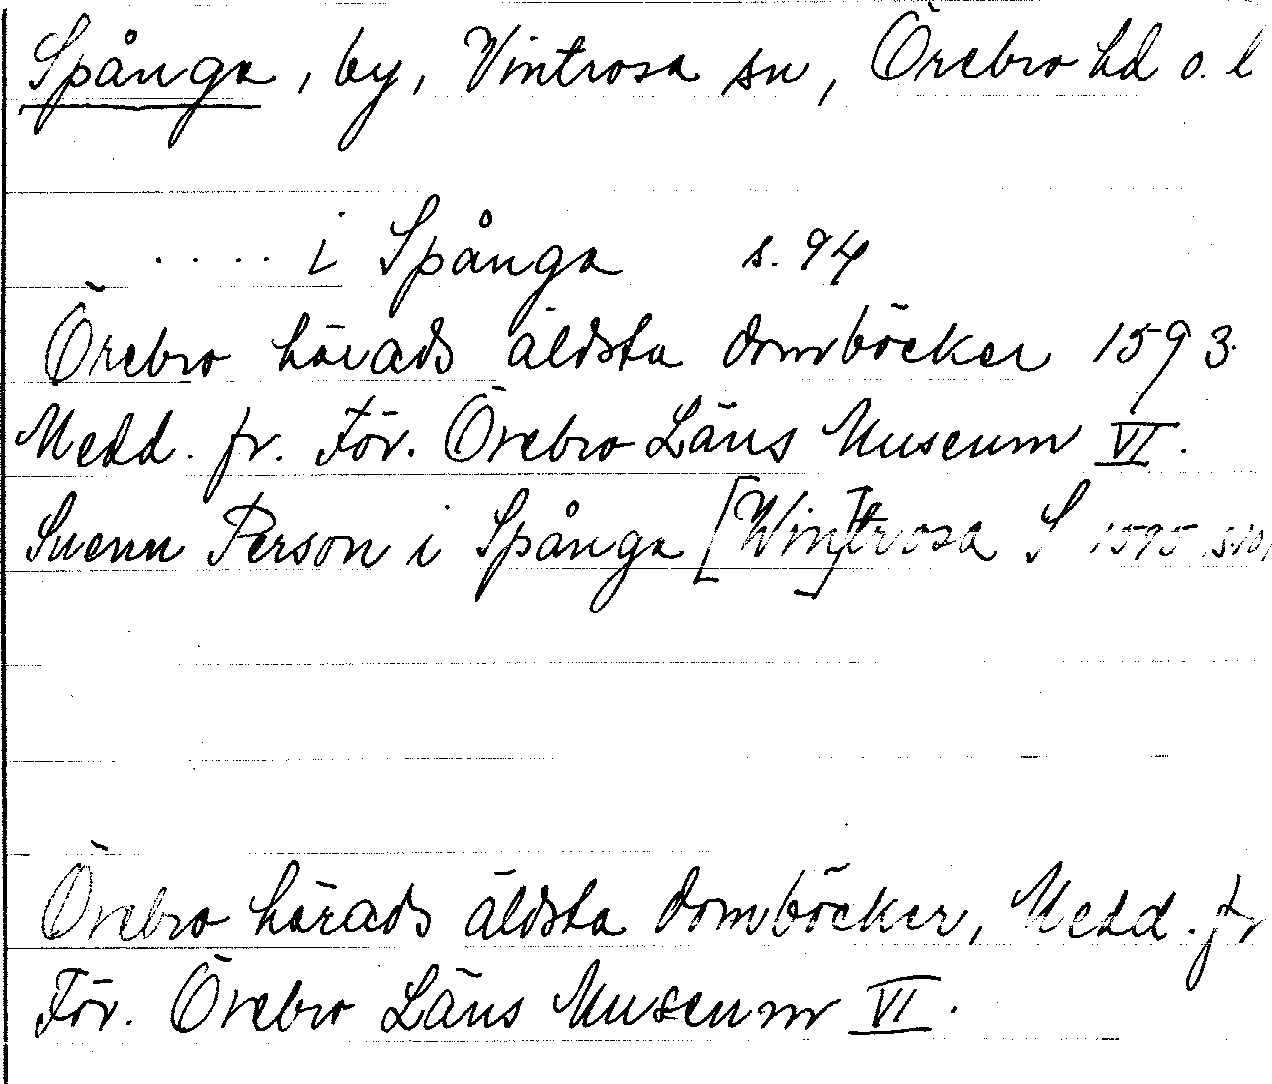 Spånga, by, Vintrosa sn, Örebro hd o. l
.... i Spånga s. 94
Örebro härads äldsta domböcker 1593.
Medd. fr. För. Örebro Läns Museum VI.
Suenn Person i Spånga [Win]trosa S 1595
Örebro härads äldsta domböcker, Medd. fr
För. Örebro Läns Museum VI.